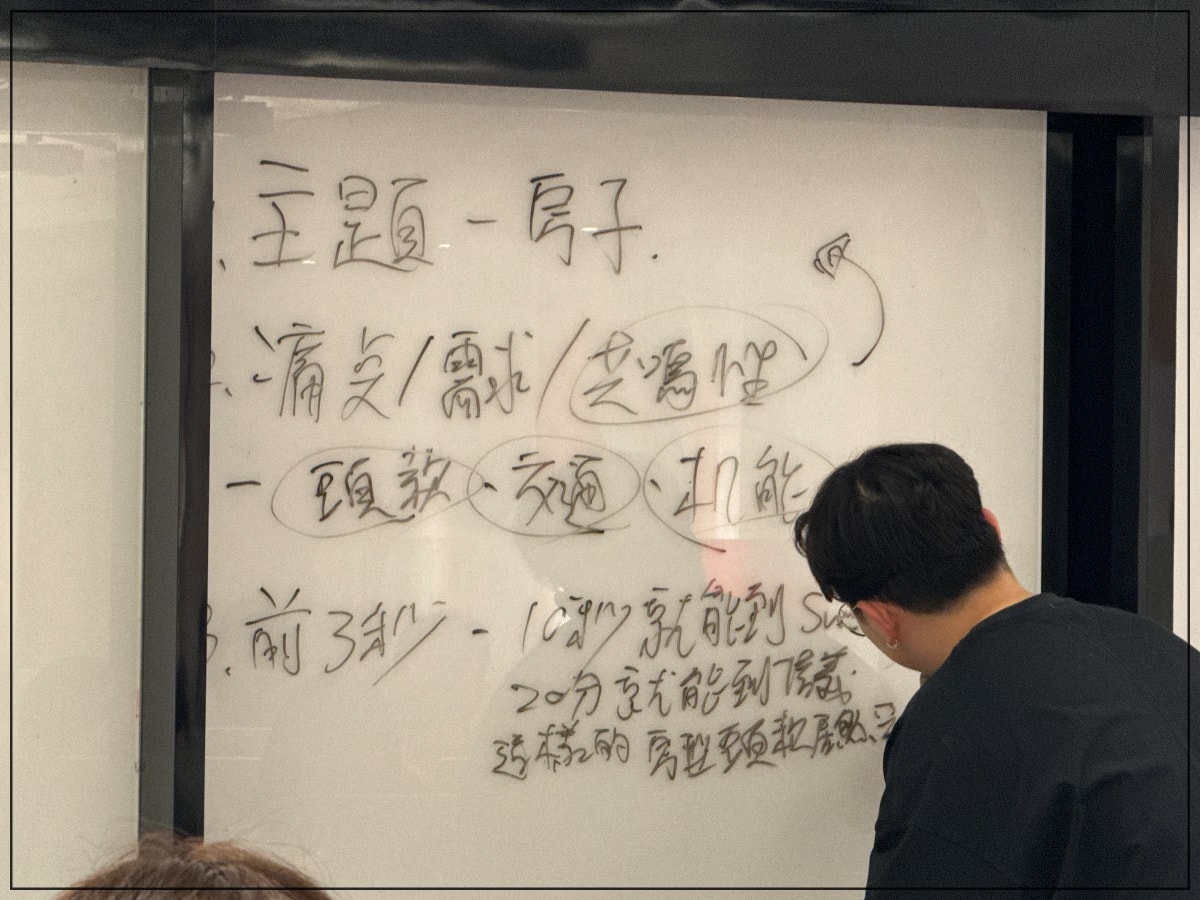 主題 - 房子.
痛点/需求/共鳴性
- 頭款 · 交通 · 机能
3. 前3秒 - 10秒就能到
20分就能到信義.
這樣的房型頭款居然只